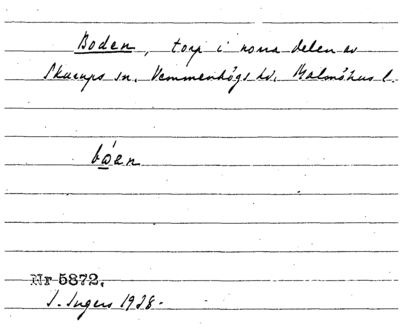 Boden, torp i norra delen av
Skurups sn, Vemmenhögs hd, Malmöhus l.
bóen
Nr 5872.
I. Ingers 1928.